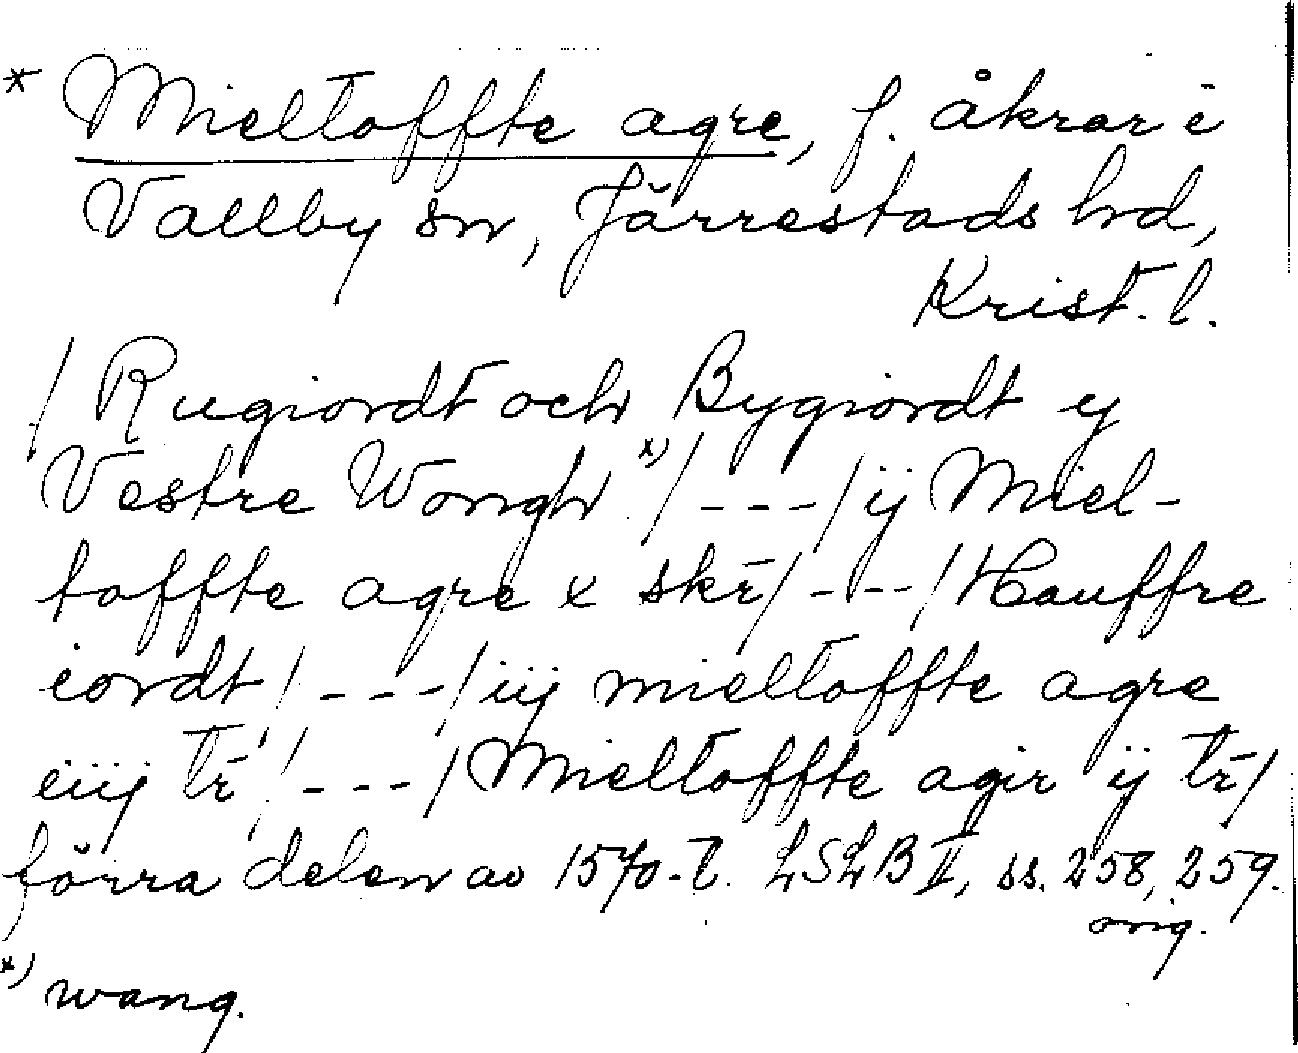 * Mieltoffte agre, f. åkrar i
Vallby sn, Järrestads hd,
Krist. l.
/ Rugiordt och Bygiordt y
Vestre Wongh x) / --- / ij Miel-
toffte agre x skr̄ / --- / Hauffre
iordt / --- / iij mieltoffte agre
eiij tr̄ / --- / Mieltoffte agir ij tr̄ /
förra delen av 1570-t. LSLB II, ss. 258, 259.
orig.
x) wang.